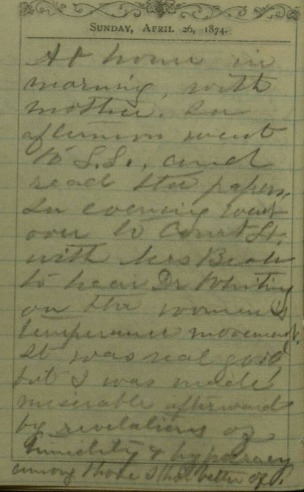 SUNDAY, APRIL 26, 1874.
At home in
morning, with
mother. In
afternoon went
to S.S., and
read the papers.
In evening went
over to Court St.
with Mrs
to hear Dr Whiting
on the women's
temperance movement.
It was real good
but I was made
miserable afterward
by revelations of
& hypocrisy
among those I tho't better of.